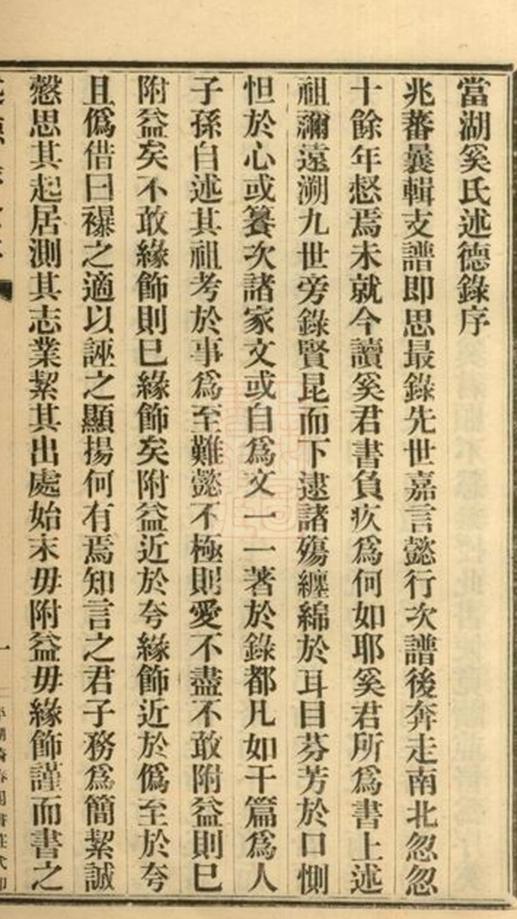 當湖奚氏述德錄序
兆蕃曩輯支譜即思最錄先世嘉言懿行次譜後奔走南北忽忽
十餘年愸焉未就今讀奚君書負疚爲何如耶奚君所爲書上述
祖禰遠溯九世旁錄賢昆而下逮諸殤纏綿於耳目芬芳於口惻
怛於心或籑次諸家文或自爲文一一著於錄都凡如干篇爲人
子孫自述其祖考於事爲至難懿不極則愛不盡不敢附益則已
附益矣不敢緣飾則已緣飾矣附益近於夸緣飾近於僞至於夸
且僞借曰襮之適以誣之顯揚何有焉知言之君子務爲簡絜誠
慤思其起居測其志業絜其出處始末毋附益毋緣飾謹而書之
一